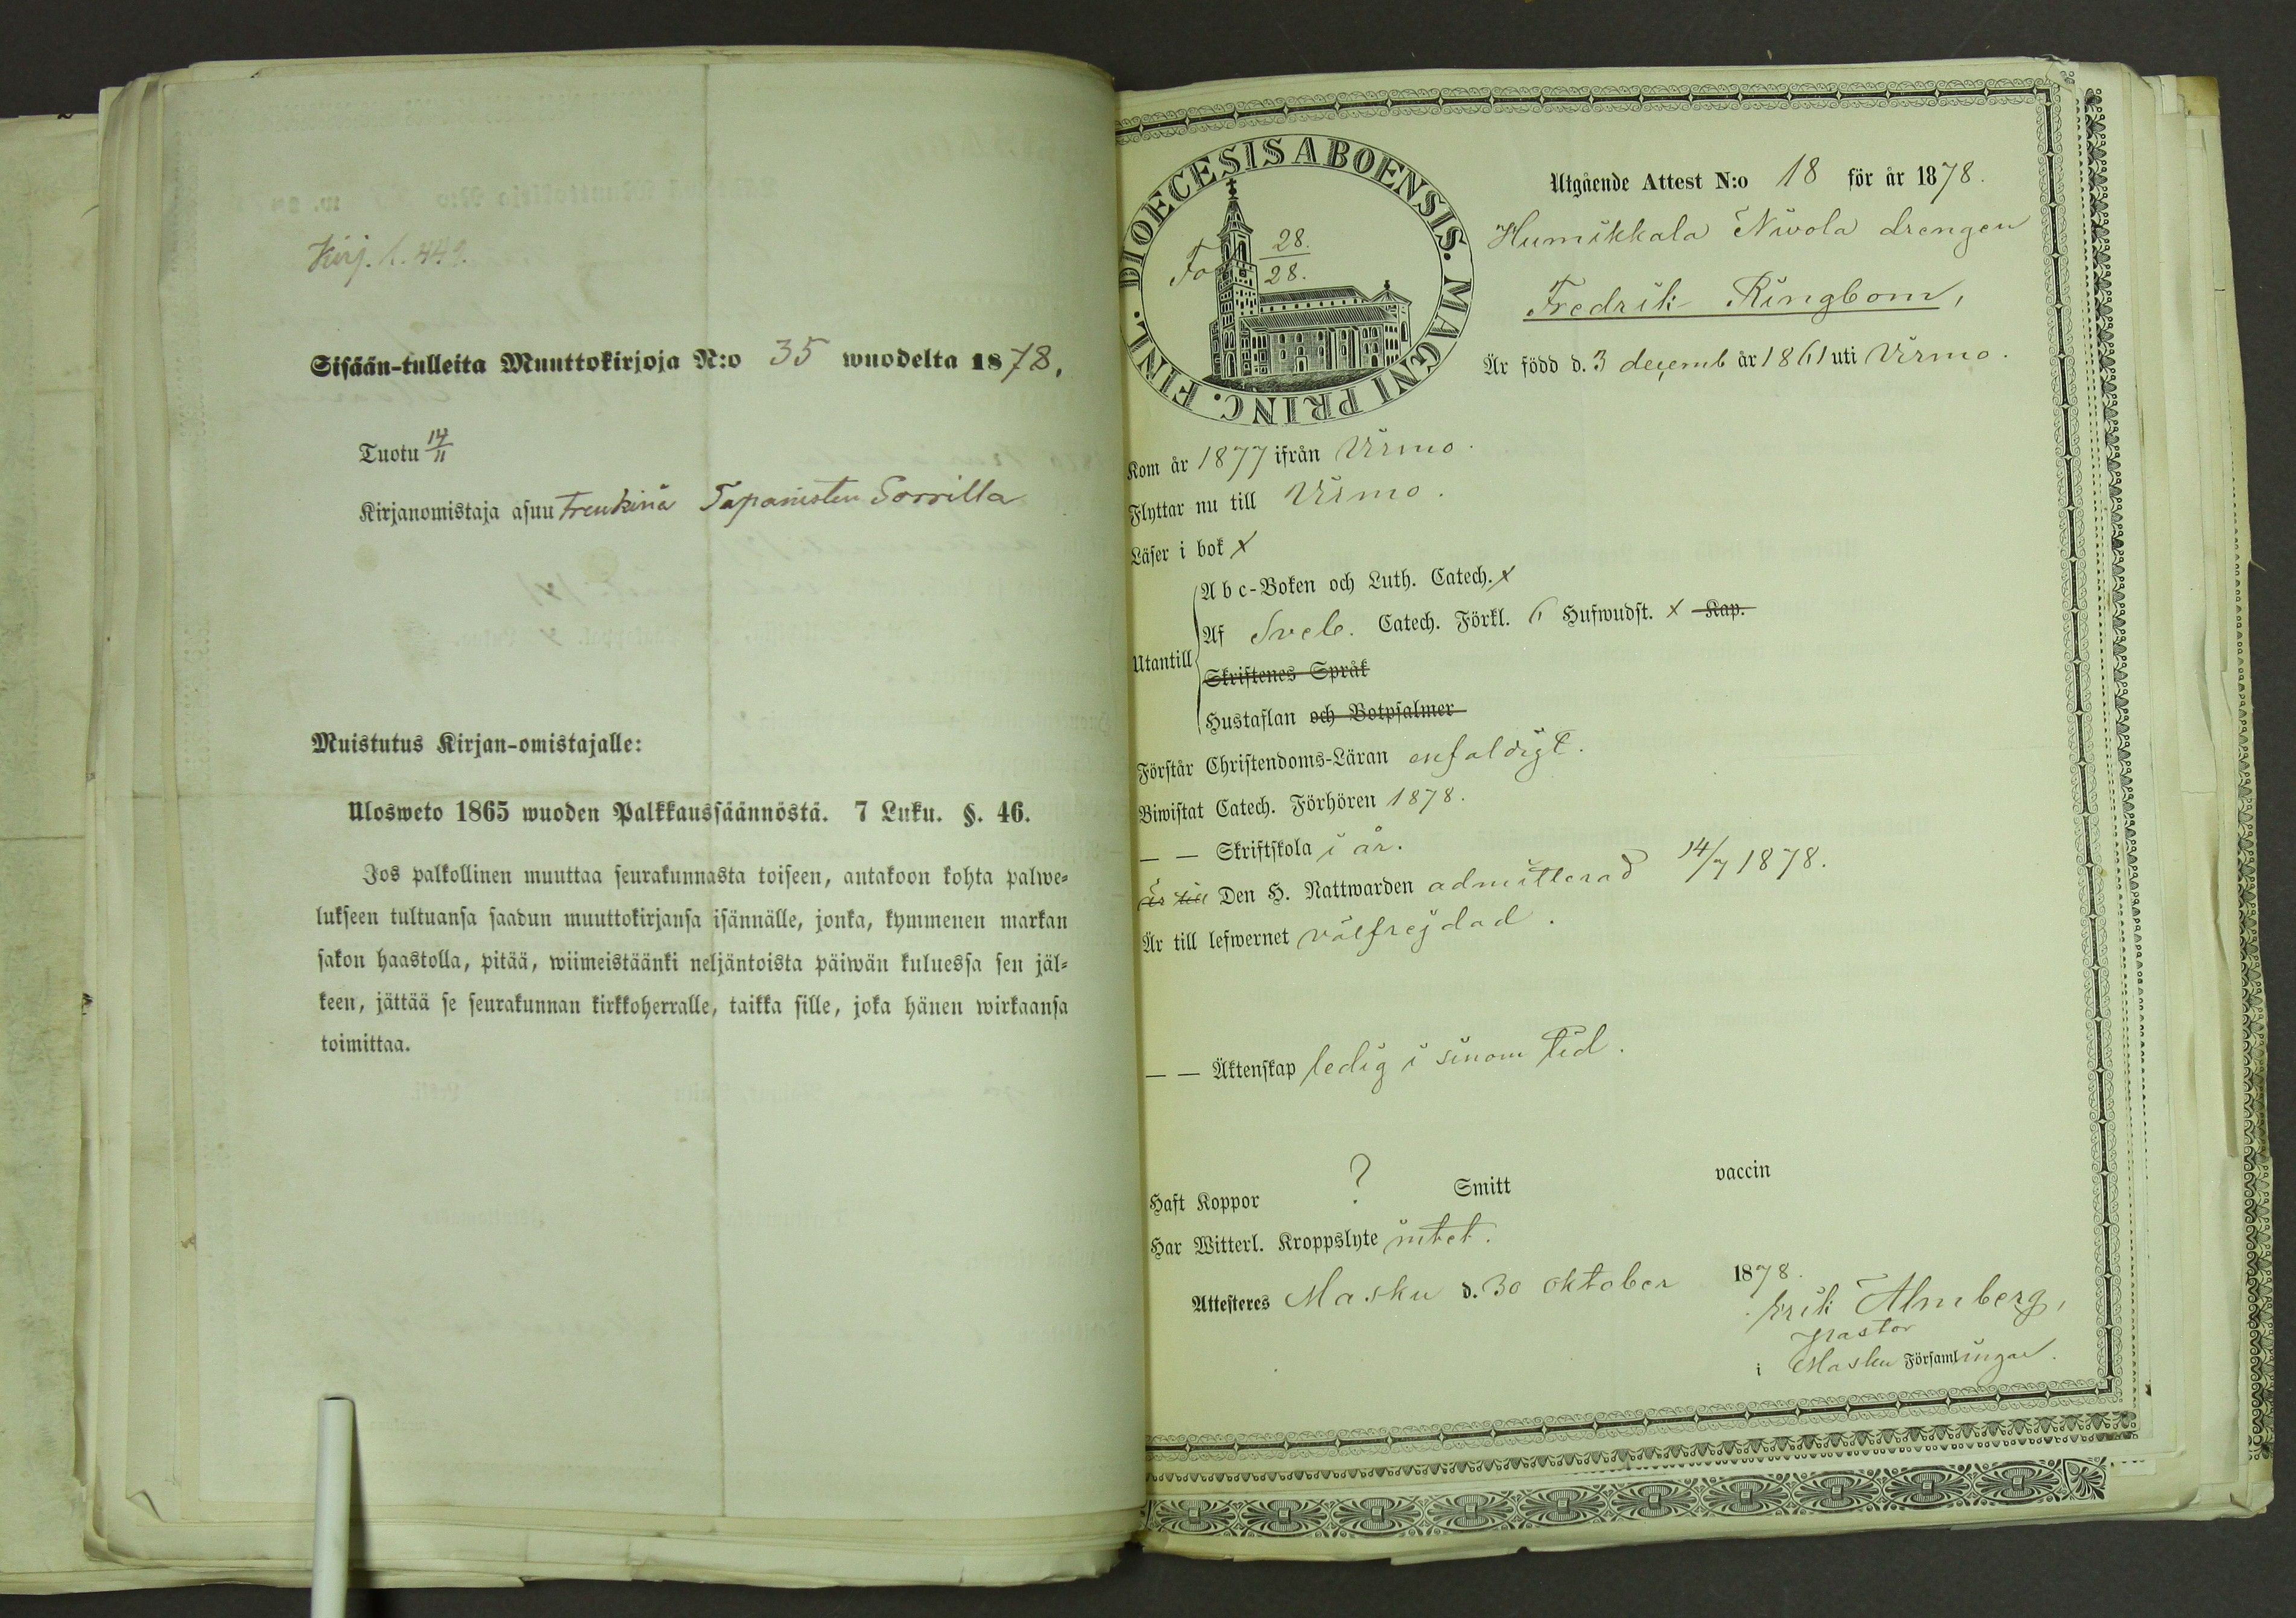 Kirj. s. 449.
Sisään-tulleita Muuttokirjoja N:o 35 wuodelta 1878.
Tuotu 14/11
Kirjanomistaja asuu Trenkinä Tapanisten Sorrilla
Muistutus Kirjan-omistajalle:
Ulosweto 1865 wuoden Palkkaussäännöstä. 7 Luku. §. 46.
Jos palkollinen muuttaa seurakunnasta toiseen, antakoon kohta palwe-
lukseen tultuansa saadun muuttokirjansa isännälle, jonka, kymmenen markan
sakon haastolla, pitää, wiimeistäänki neljäntoista päiwän kuluessa sen jäl-
keen, jättää se seurakunnan kirkkoherralle, taikka sille, joka hänen wirkaansa
toimittaa.
DIOECESIS ABOENSIS. MAGNI PRINC. FINL.
Fol 28.
28.
Utgående Attest N:o 18 för år 1878.
Humikkala Nivola drengen
Fredrik Ringbom,
Är född d. 3 decemb år 1861 uti Virmo.
Kom år 1877 ifrån Virmo.
Flyttar nu till Virmo.
Läser i bok x
Utantill
Abc-Boken och Luth. Catech. x
Af Sveb. Catech. Förkl. 6 Hufwudst. x Kap.
Skriftenes Språk
Hustaflan och Botpsalmer
Förstår Christendoms-Läran enfaldigt.
Biwistat Catech. Förhören 1878.
— — Skriftskola i år.
Är till Den H. Nattwarden admitterad 14/7 1878.
Är till lefwernet välfrejdad.
— — Äktenskap ledig i sinom tid.
Haft Koppor ? Smitt vaccin
Har Witterl. Kroppslyte intet.
Attesteres Masku d. 30 oktober 1878.
Erik Almberg,
Pastor
i Masku Församlingar.